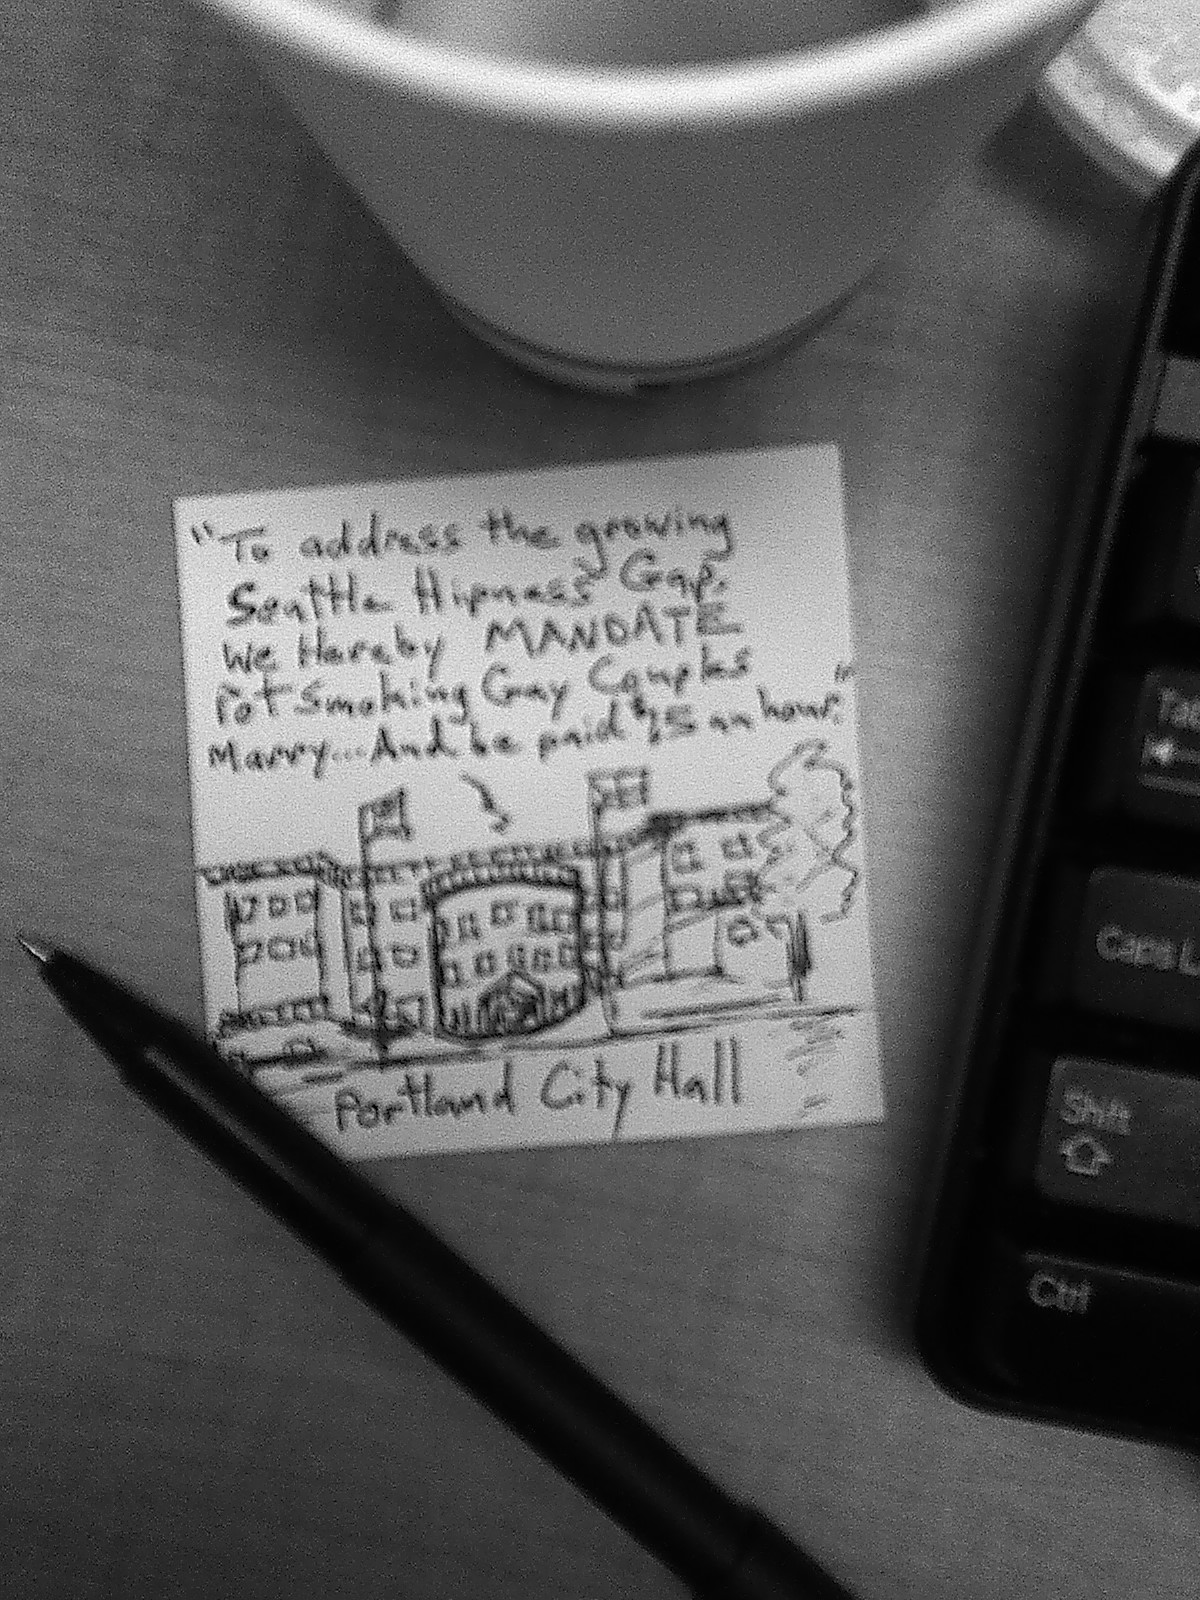 "To address the growing
Seattle 'Hipness' Gap.
We Hereby MANDATE
Pot Smoking Gay Couples
Marry... And be paid $25 an hour."
Portland City Hall
Tab
Caps L
Shift
Ctrl